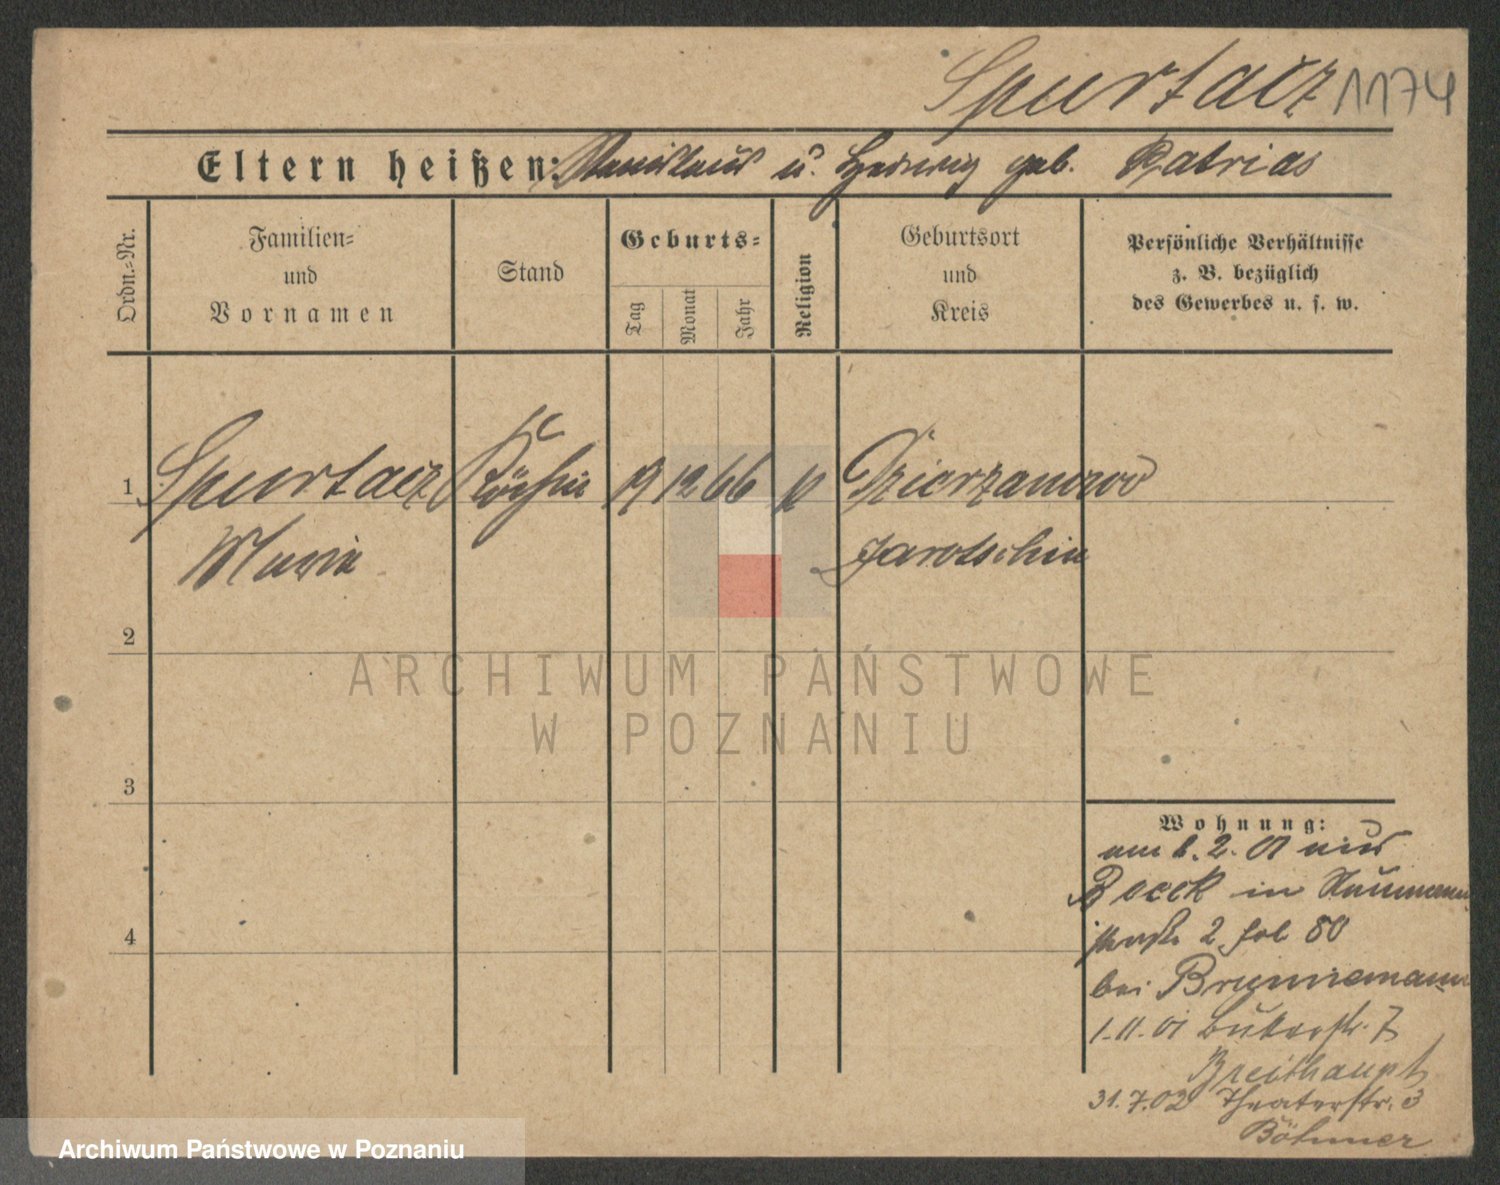 Spurtacz 1174
Eltern heißen: Stanislaus u. Hedwig geb. Ratrias
Ordn.-Nr.
Familien-
und
Vornamen
Stand
Geburts-
Tag
Monat
Jahr
Religion
Geburtsort
und
Kreis
Persönliche Verhältnisse
z. B. bezüglich
des Gewerbes u. s. w.
1 Spurtacz Köchin 19 12 66 k Dzierzanow
Maria Jarotschin
2
3
4
Wohnung:
2. 01
in Naumann
straße 2 80
bei Brunnemann
1.11.01 7
Breithaupt
31.7.02 Theaterstr. 3
Böhmer
ARCHIWUM PAŃSTWOWE
W POZNANIU
Archiwum Państwowe w Poznaniu